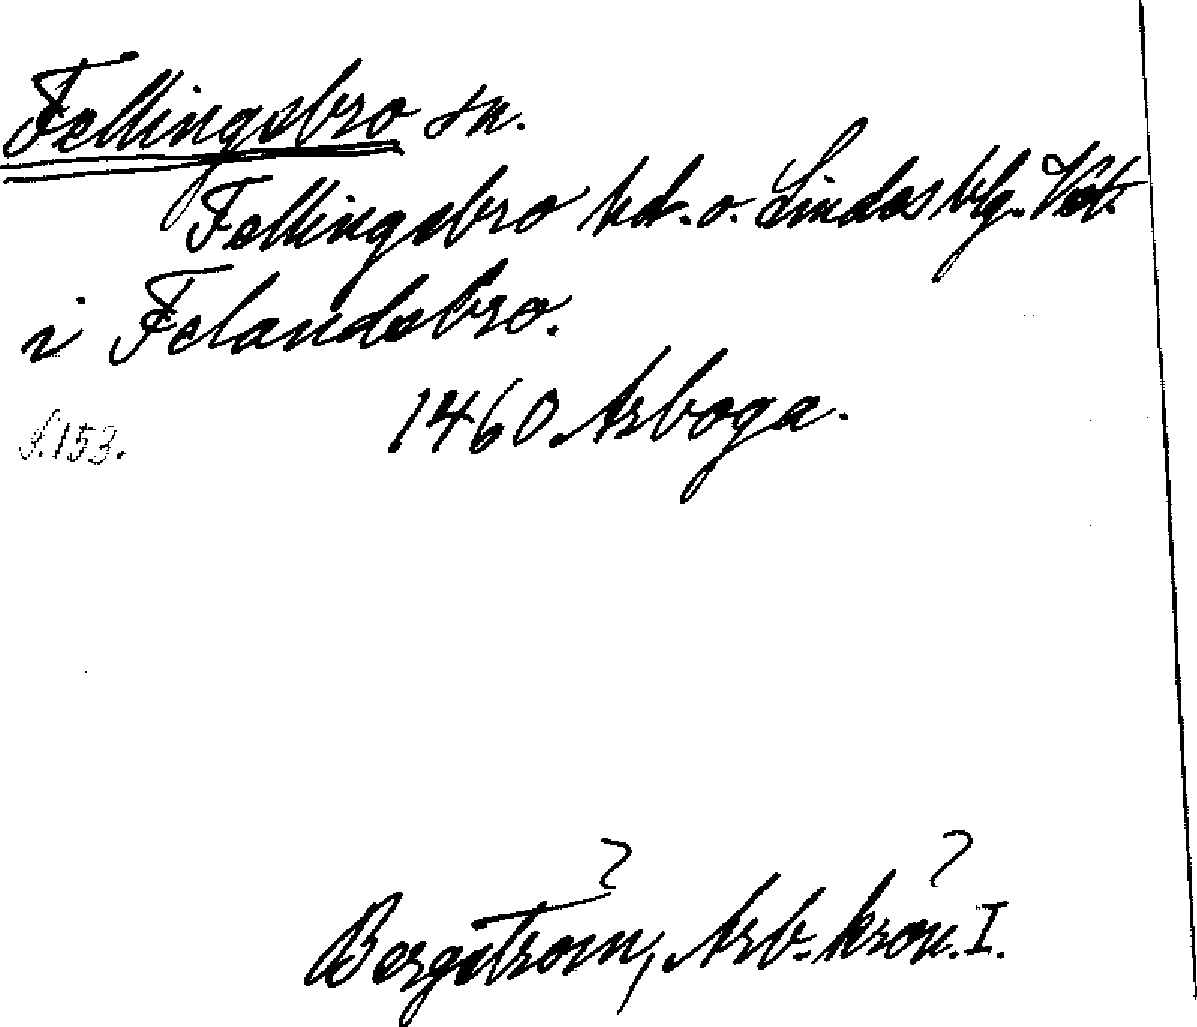 Fellingsbro sn.
Fellingsbro hd. o. Lindesblg. Vstm.
i Felandsbro.
1460 Arboga.
S. 153.
? ?
Bergström, Arb. krön. I.